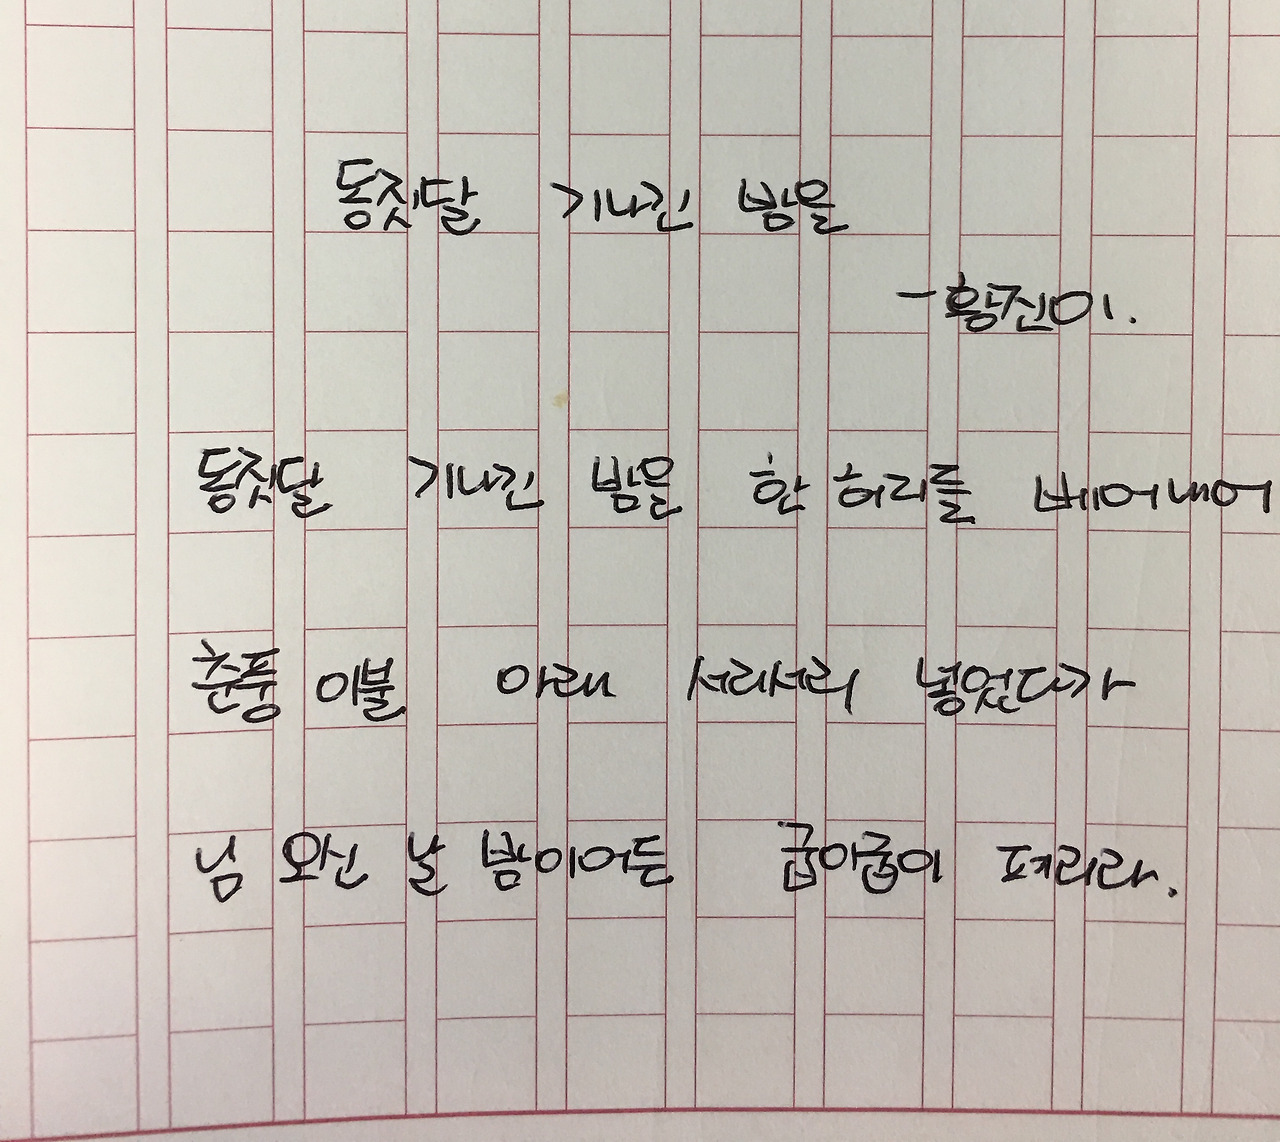 동짓달 기나긴 밤을
- 황진이.
동짓달 기나긴 밤을 한 허리를 베어내어
춘풍 이불 아래 서리서리 넣었다가
님 오신 날 밤이어든 굽이굽이 펴리라.